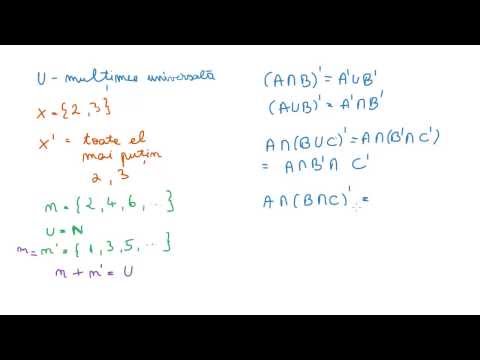 U - mulțimea universală
X = {2, 3}
X' = toate el
mai puțin
2, 3
n = {2, 4, 6, ...}
U = N
m = n' = {1, 3, 5, ...}
n + n' = U
(A∩B)' = A'∪B'
(A∪B)' = A'∩B'
A∩(B∪C)' = A∩(B'∩C')
= A∩B'∩ C'
A∩(B∩C)' =